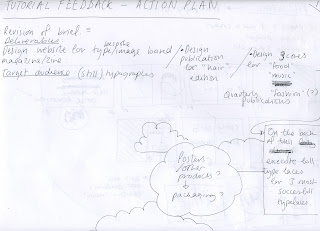 TUTORIAL FEEDBACK - ACTION PLAN
Revision of brief. =
Deliverables
bespoke
Design website for type/image based
magazine/zine
Target audience (still) typographers
/ • Design
publication
for "hair"
edition
/ • Design 3 cones
for "food"
"music"
"fashion" (?)
Quarterly
publications
Posters
other
products?
↓
packaging?
On the back
of this
execute full
type faces
for 3 most
succesful
typefaces.